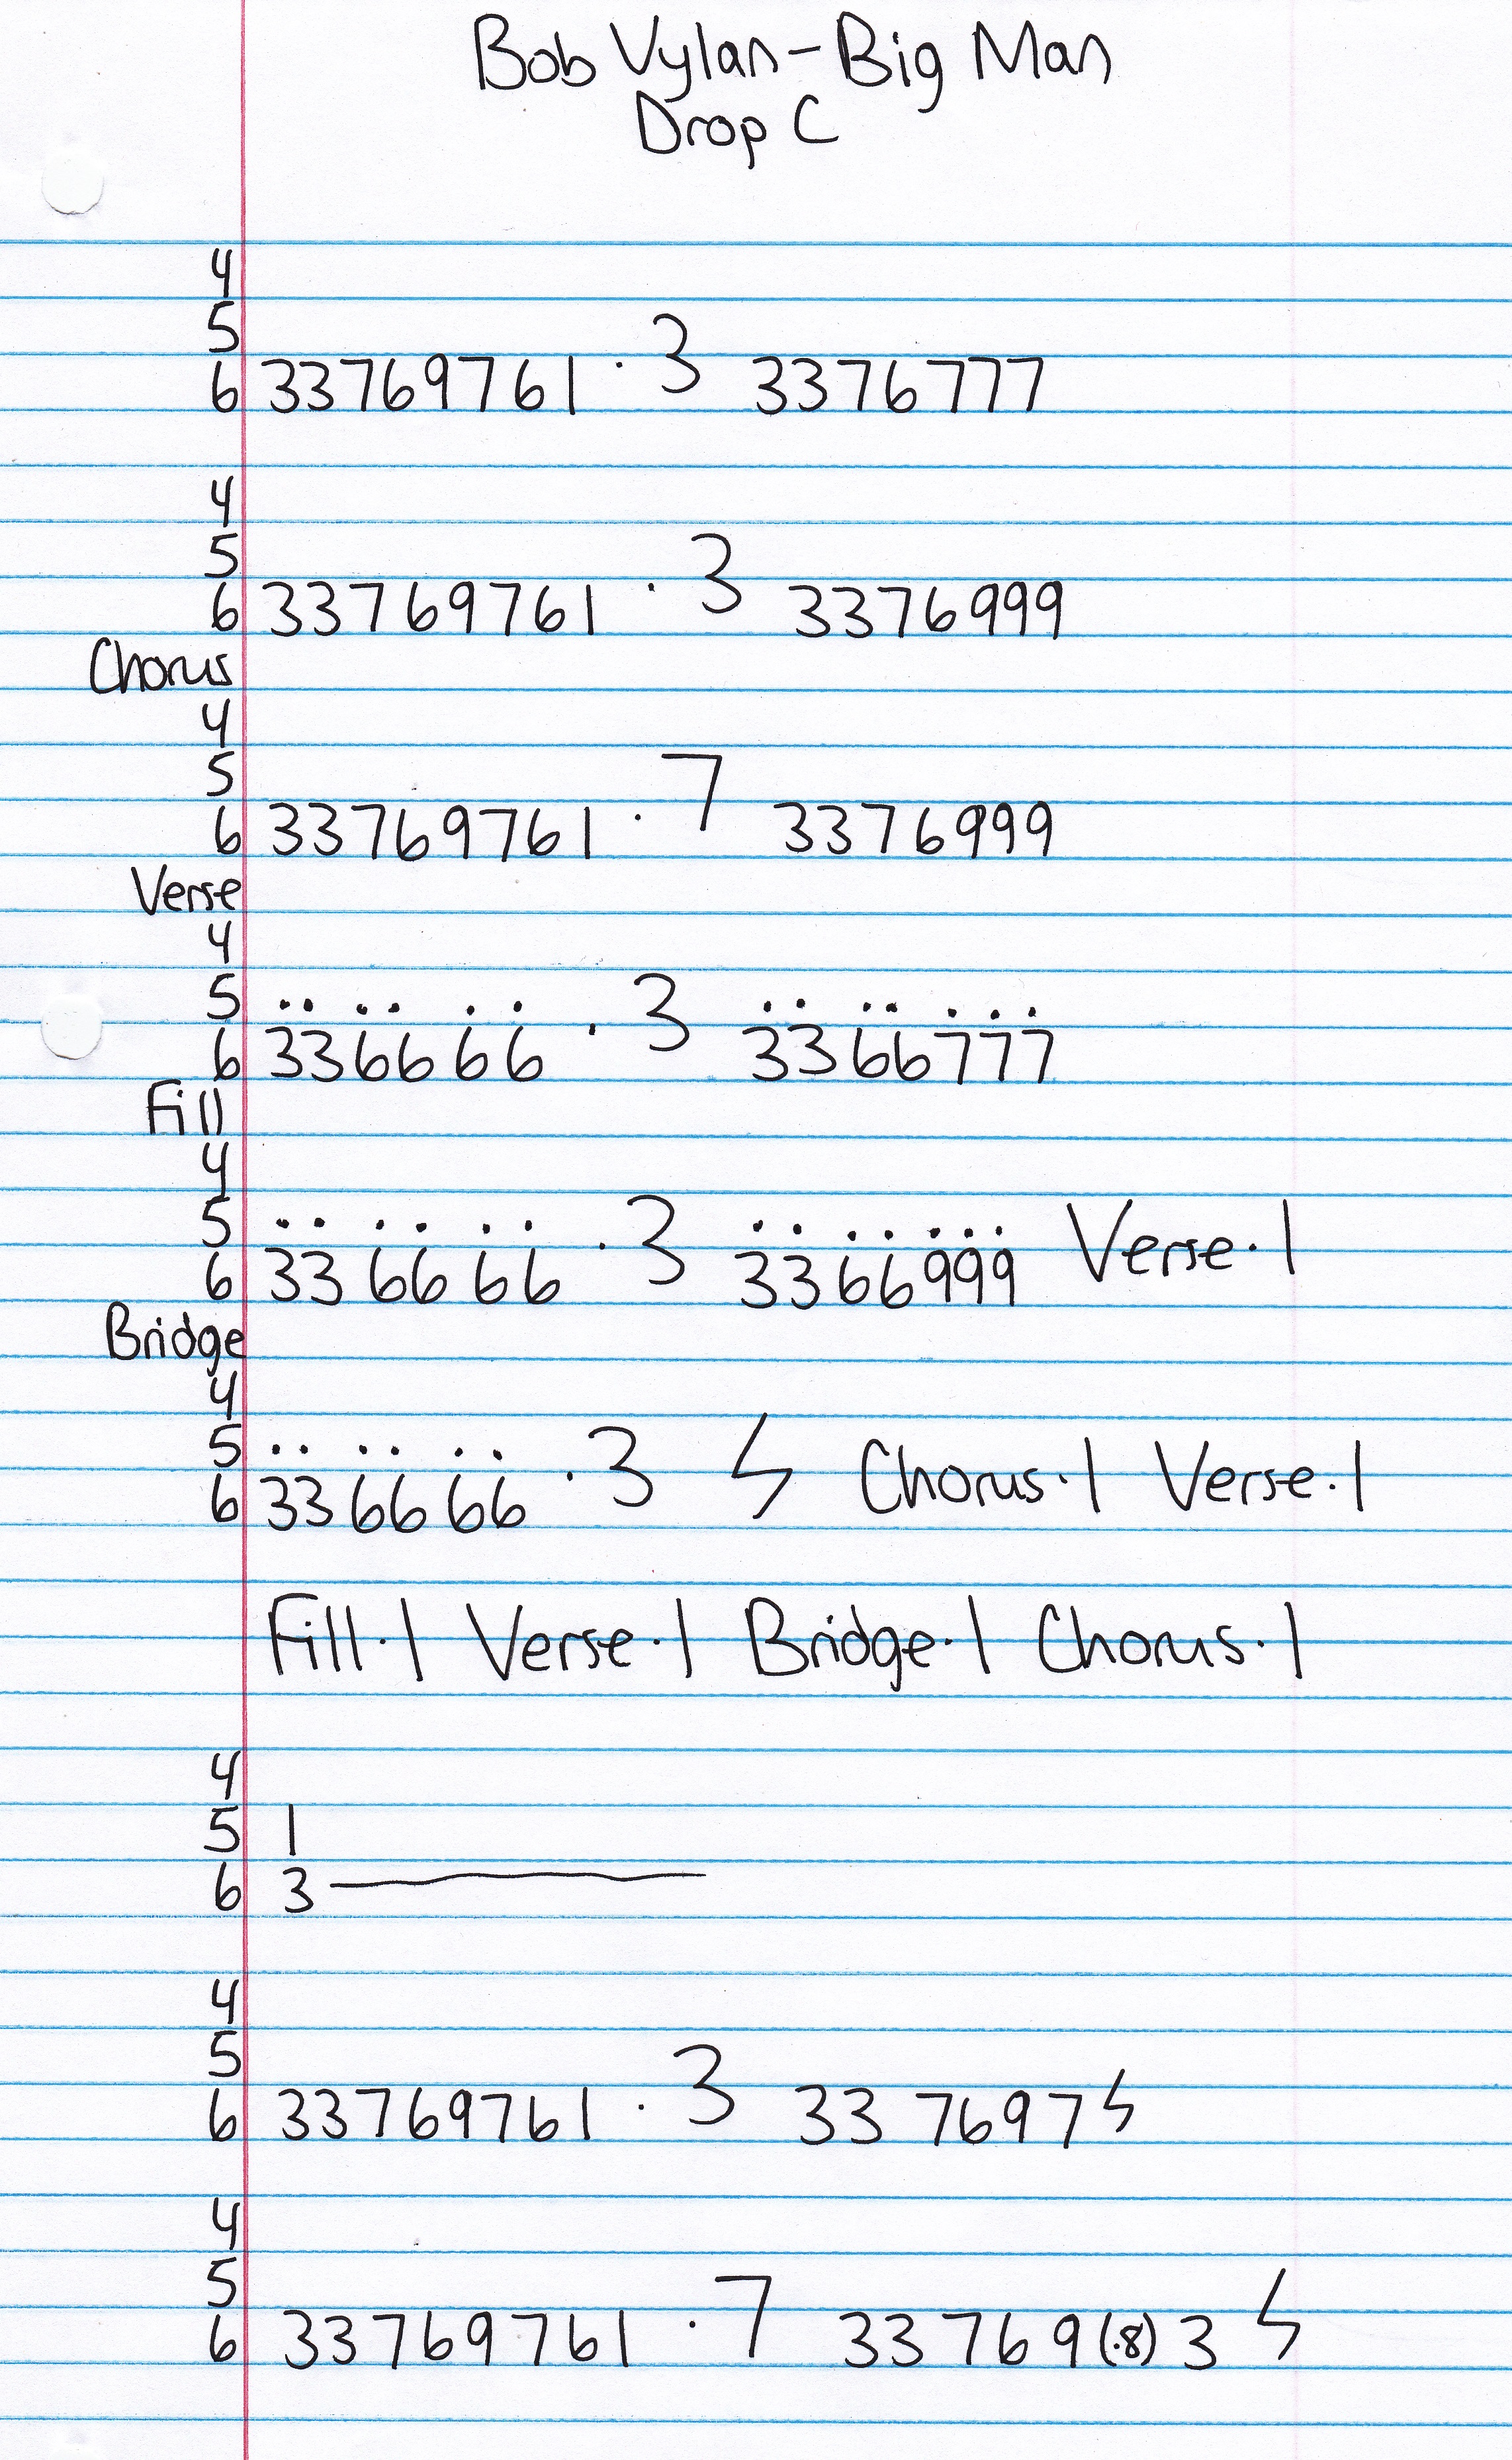 Bob Vylan - Big Man
Drop C
4
5
6 33769761 · 3 3376777
4
5
6 33769761 · 3 3376999
Chorus
4
5
6 33769761 · 7 3376999
Verse
4
5 .. .. . .   .. .. . . .
6 33 66 66 · 3 33 66 777
Fill
4
5 .. .. ..   .. .. ...
6 33 66 66 · 3 33 66 999 Verse · 1
Bridge
4
5 .. .. ..
6 33 66 66 · 3 ϟ Chorus · 1 Verse · 1
Fill · 1 Verse · 1 Bridge · 1 Chorus · 1
4
5 1
6 3 ———
4
5
6 33769761 · 3 33 7697 ϟ
4
5
6 33769761 · 7 33 769(·8)3 ϟ